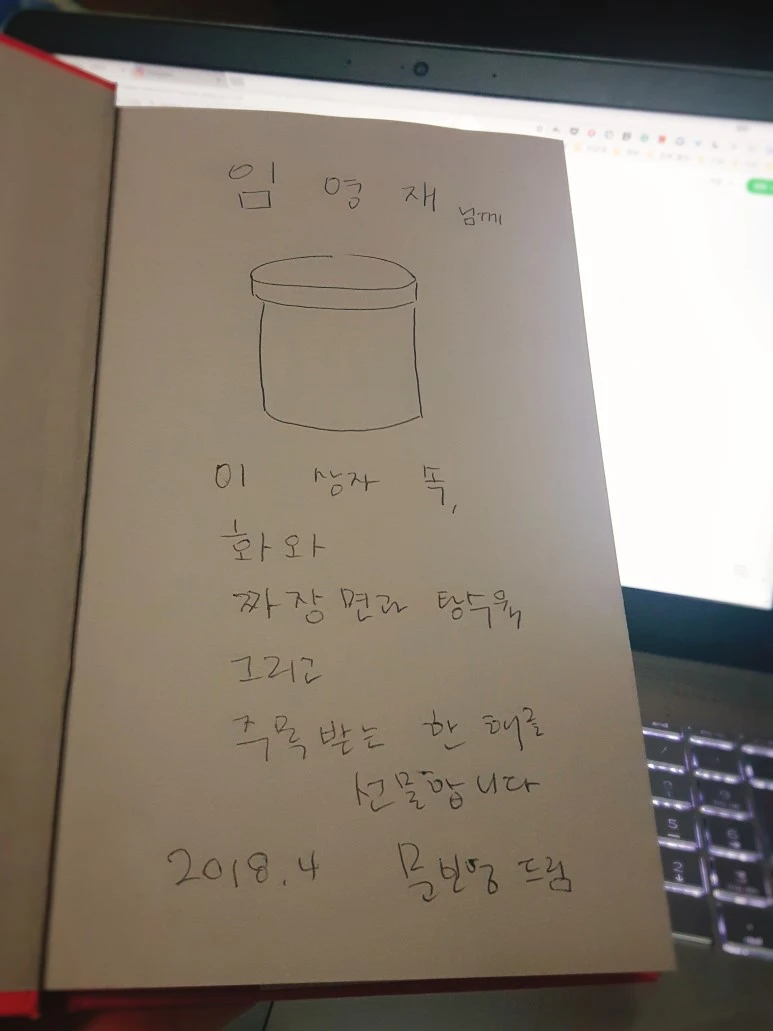 임영재 님께
이 상자 속,
화와
짜장면과 탕수육
그리고
주목받는 한 해를
선물합니다
2018.4 문빈영 드림